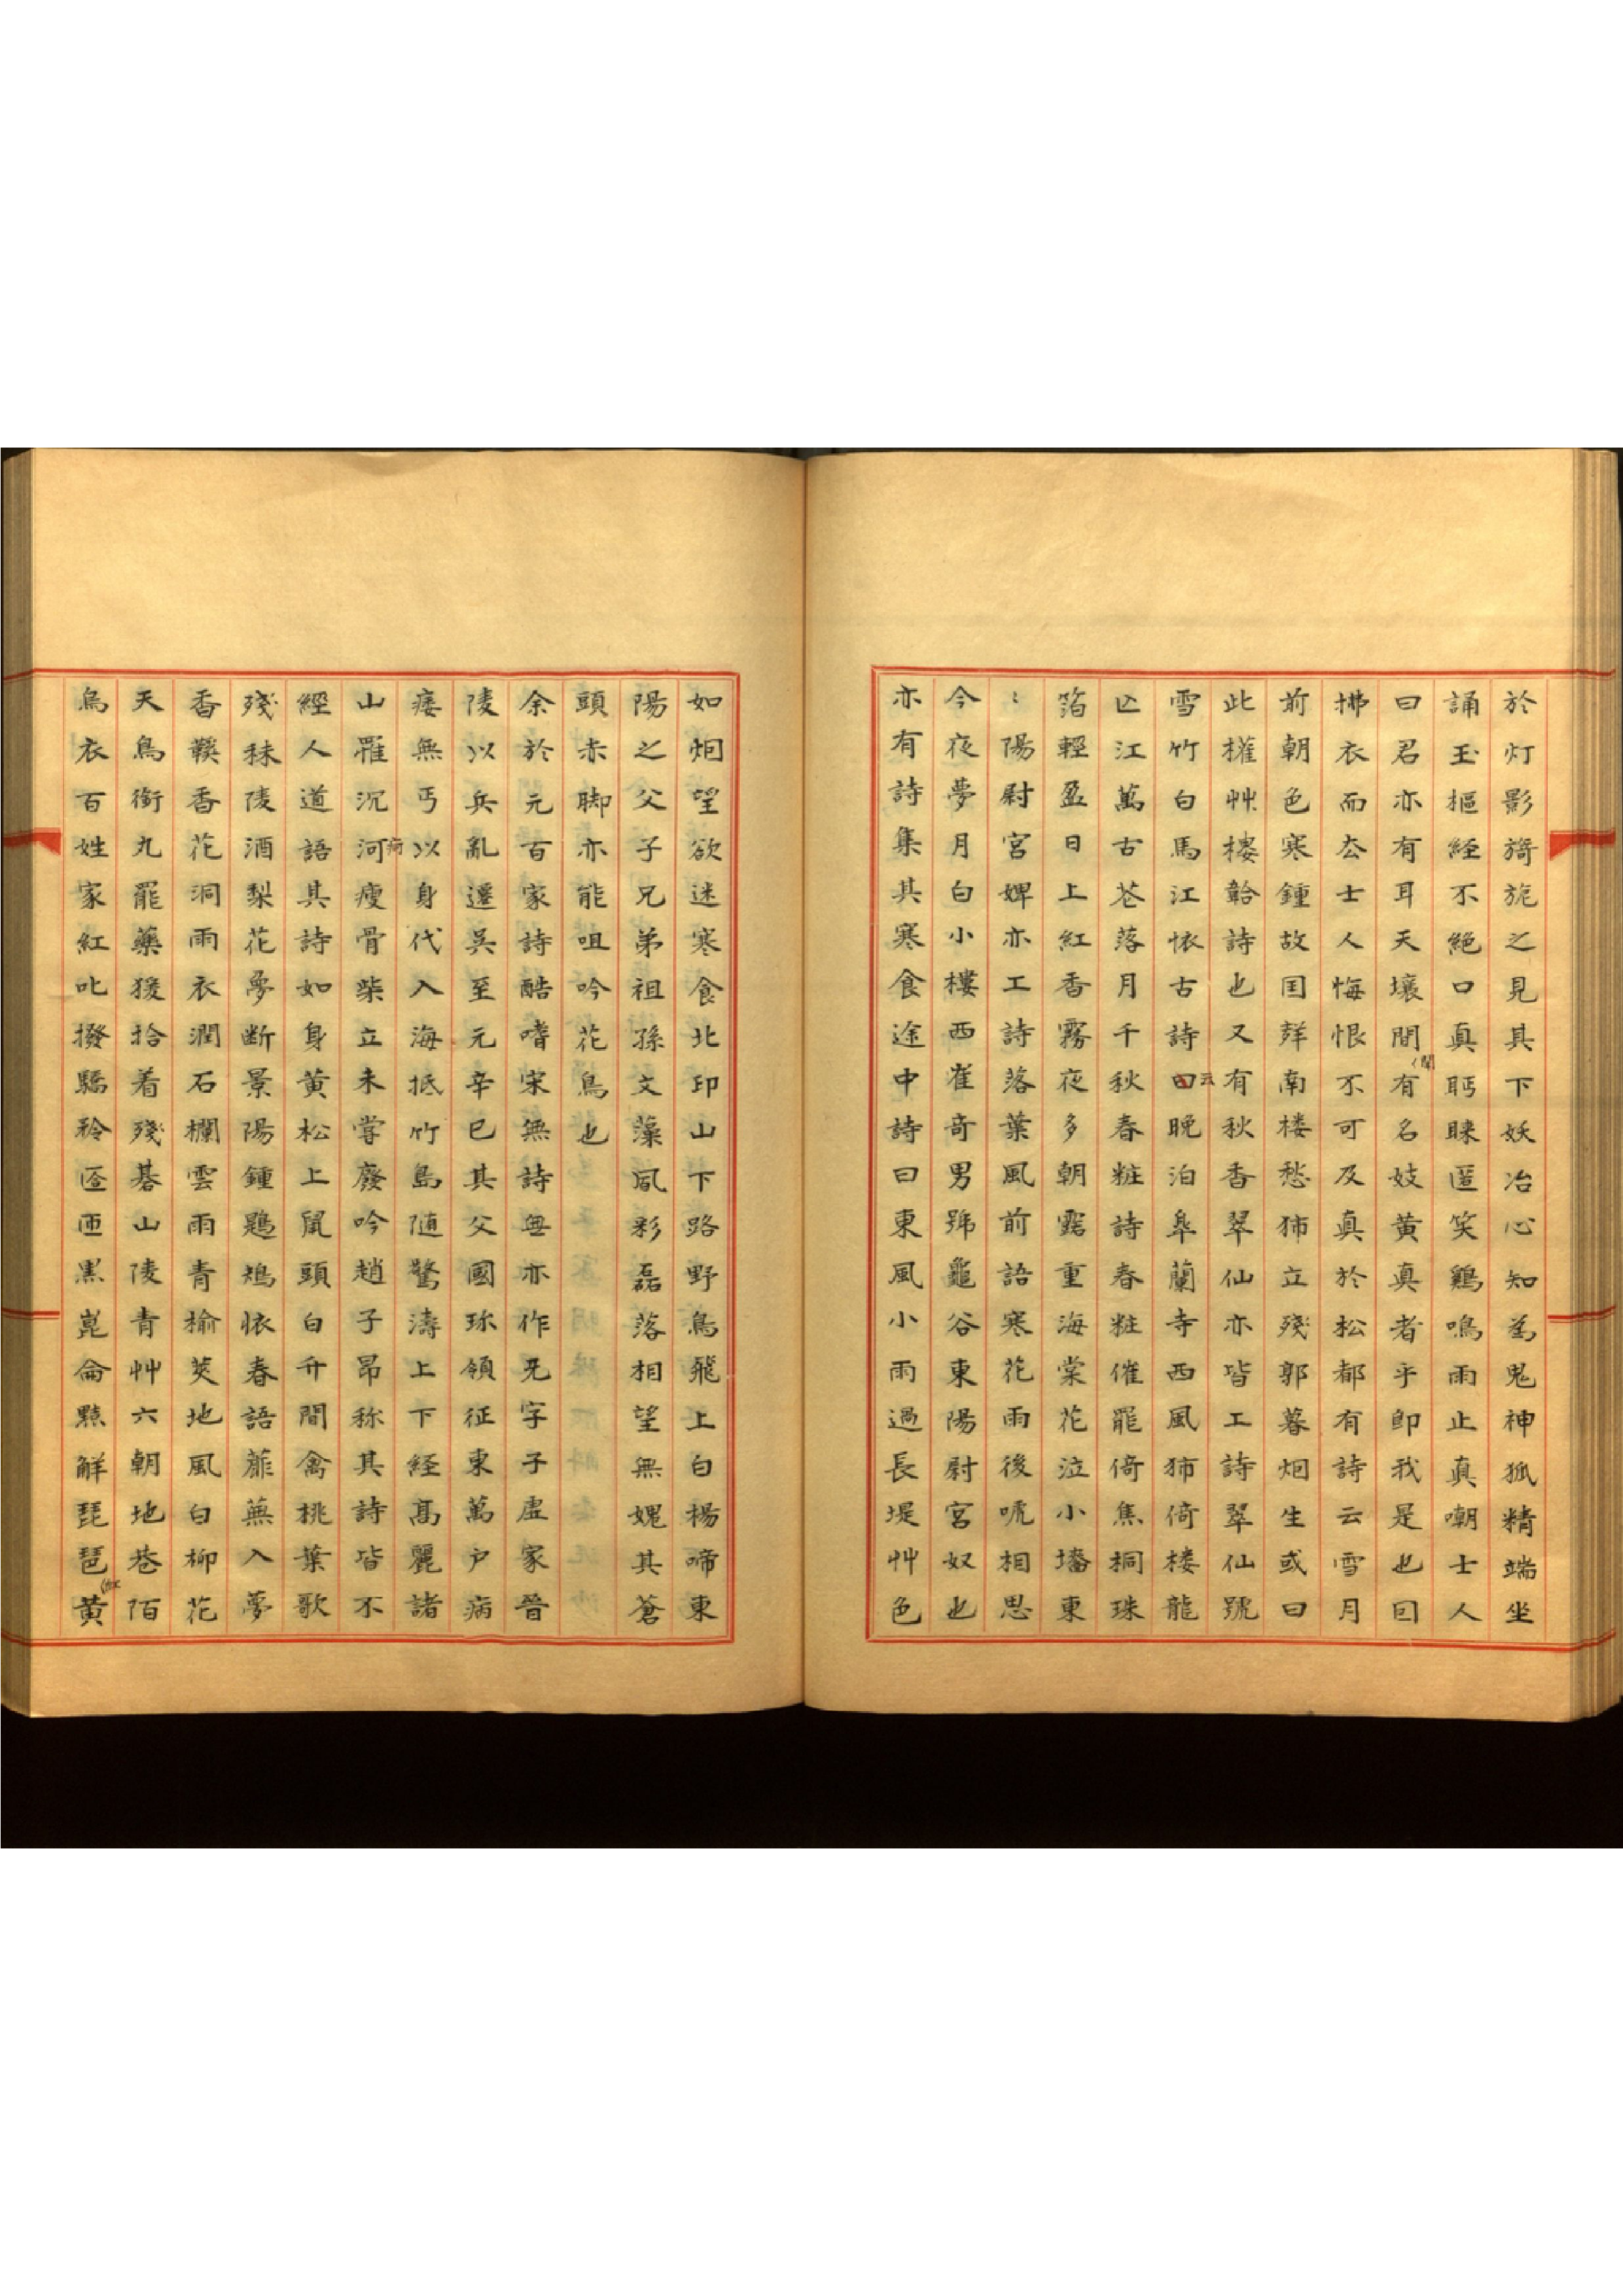 於灯影旖旎之見其下妖冶心知為鬼神狐精端坐
誦玉樞経不絶口真眄睞匿笑鷄鳴雨止真嘲士人
曰君亦有耳天壤間有名妓黄真者乎即我是也囙
拂衣而厺士人悔恨不可及真於松都有詩云雪月
前朝色寒鍾故囯聲南楼愁獨立殘郭暮烟生或曰
此權艸樓韐詩也又有秋香翠仙亦皆工詩翠仙號
雪竹白馬江懐古詩曰晚泊皐蘭寺西風獨倚楼龍
亾江萬古花落月千秋春粧詩春粧催罷倚焦桐珠
箔輕盈日上紅香霧夜多朝露重海棠花泣小墻東
〻陽尉宮婢亦工詩落葉風前語寒花雨後啼相思
今夜夢月白小樓西崔奇男號龜谷東陽尉宮奴也
亦有詩集其寒食途中詩曰東風小雨過長堤艸色
如烟望欲迷寒食北邙山下路野鳥飛上白楊啼東
陽之父子兄弟祖孫文藻風彩磊落相望無媿其蒼
頭赤脚亦能咀吟花鳥也
余於元百家詩酷嗜宋無詩無亦作旡字子虛家晉
陵以兵亂遷吳至元辛巳其父國珎領征東萬户病
痿無丐以身代入海抵竹島随驚濤上下経髙麗諸
山罹沉河瘦骨柴立未甞廢吟趙子昂称其詩皆不
經人道語其詩如身黄松上鼠頭白升間禽桃葉歌
殘秣陵酒梨花夢断景陽鍾鶗鴂懐春語蘼蕪入夢
香鞵香花洞雨衣潤石欄雲雨青榆莢地風白柳花
天鳥銜丸罷藥猨拾着殘棊山陵青艸六朝地巷陌
烏衣百姓家紅叱撥驕衿匼匝黒崑侖㸃解琵琶黄